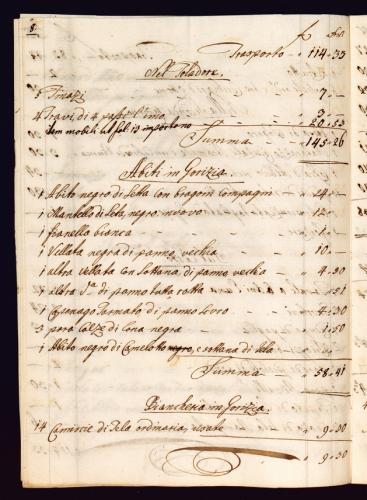 8.
Trasporto - 114 - 33
Nel Poladore.
7 -
4 Travi di 4 passi l'uno - 3 -
20 - 53
Summa - 145 - 26
Abiti in Gorizia
1 Abito negro di Setta con bragoni compagni - 24 -
1 Mantello di Seta negro nuovo - 12 -
1 franella bianca - 1 -
1 Vellata negra di panno vechia - 10 -
1 altra Vellata con Sottana di panno vechia - 4 - 30
1 altra di panno tutta rotta - 51
1 di panno - 4 - 30
3 para Calze di Lana negra - 1 - 50
1 Abito negro di Camelotto negro, e sottana di Tela
Summa - 58 - 41
Biancheria in Gorizia.
14 Camicie di Tela ordinaria, usate - 9 - 30
9 - 30